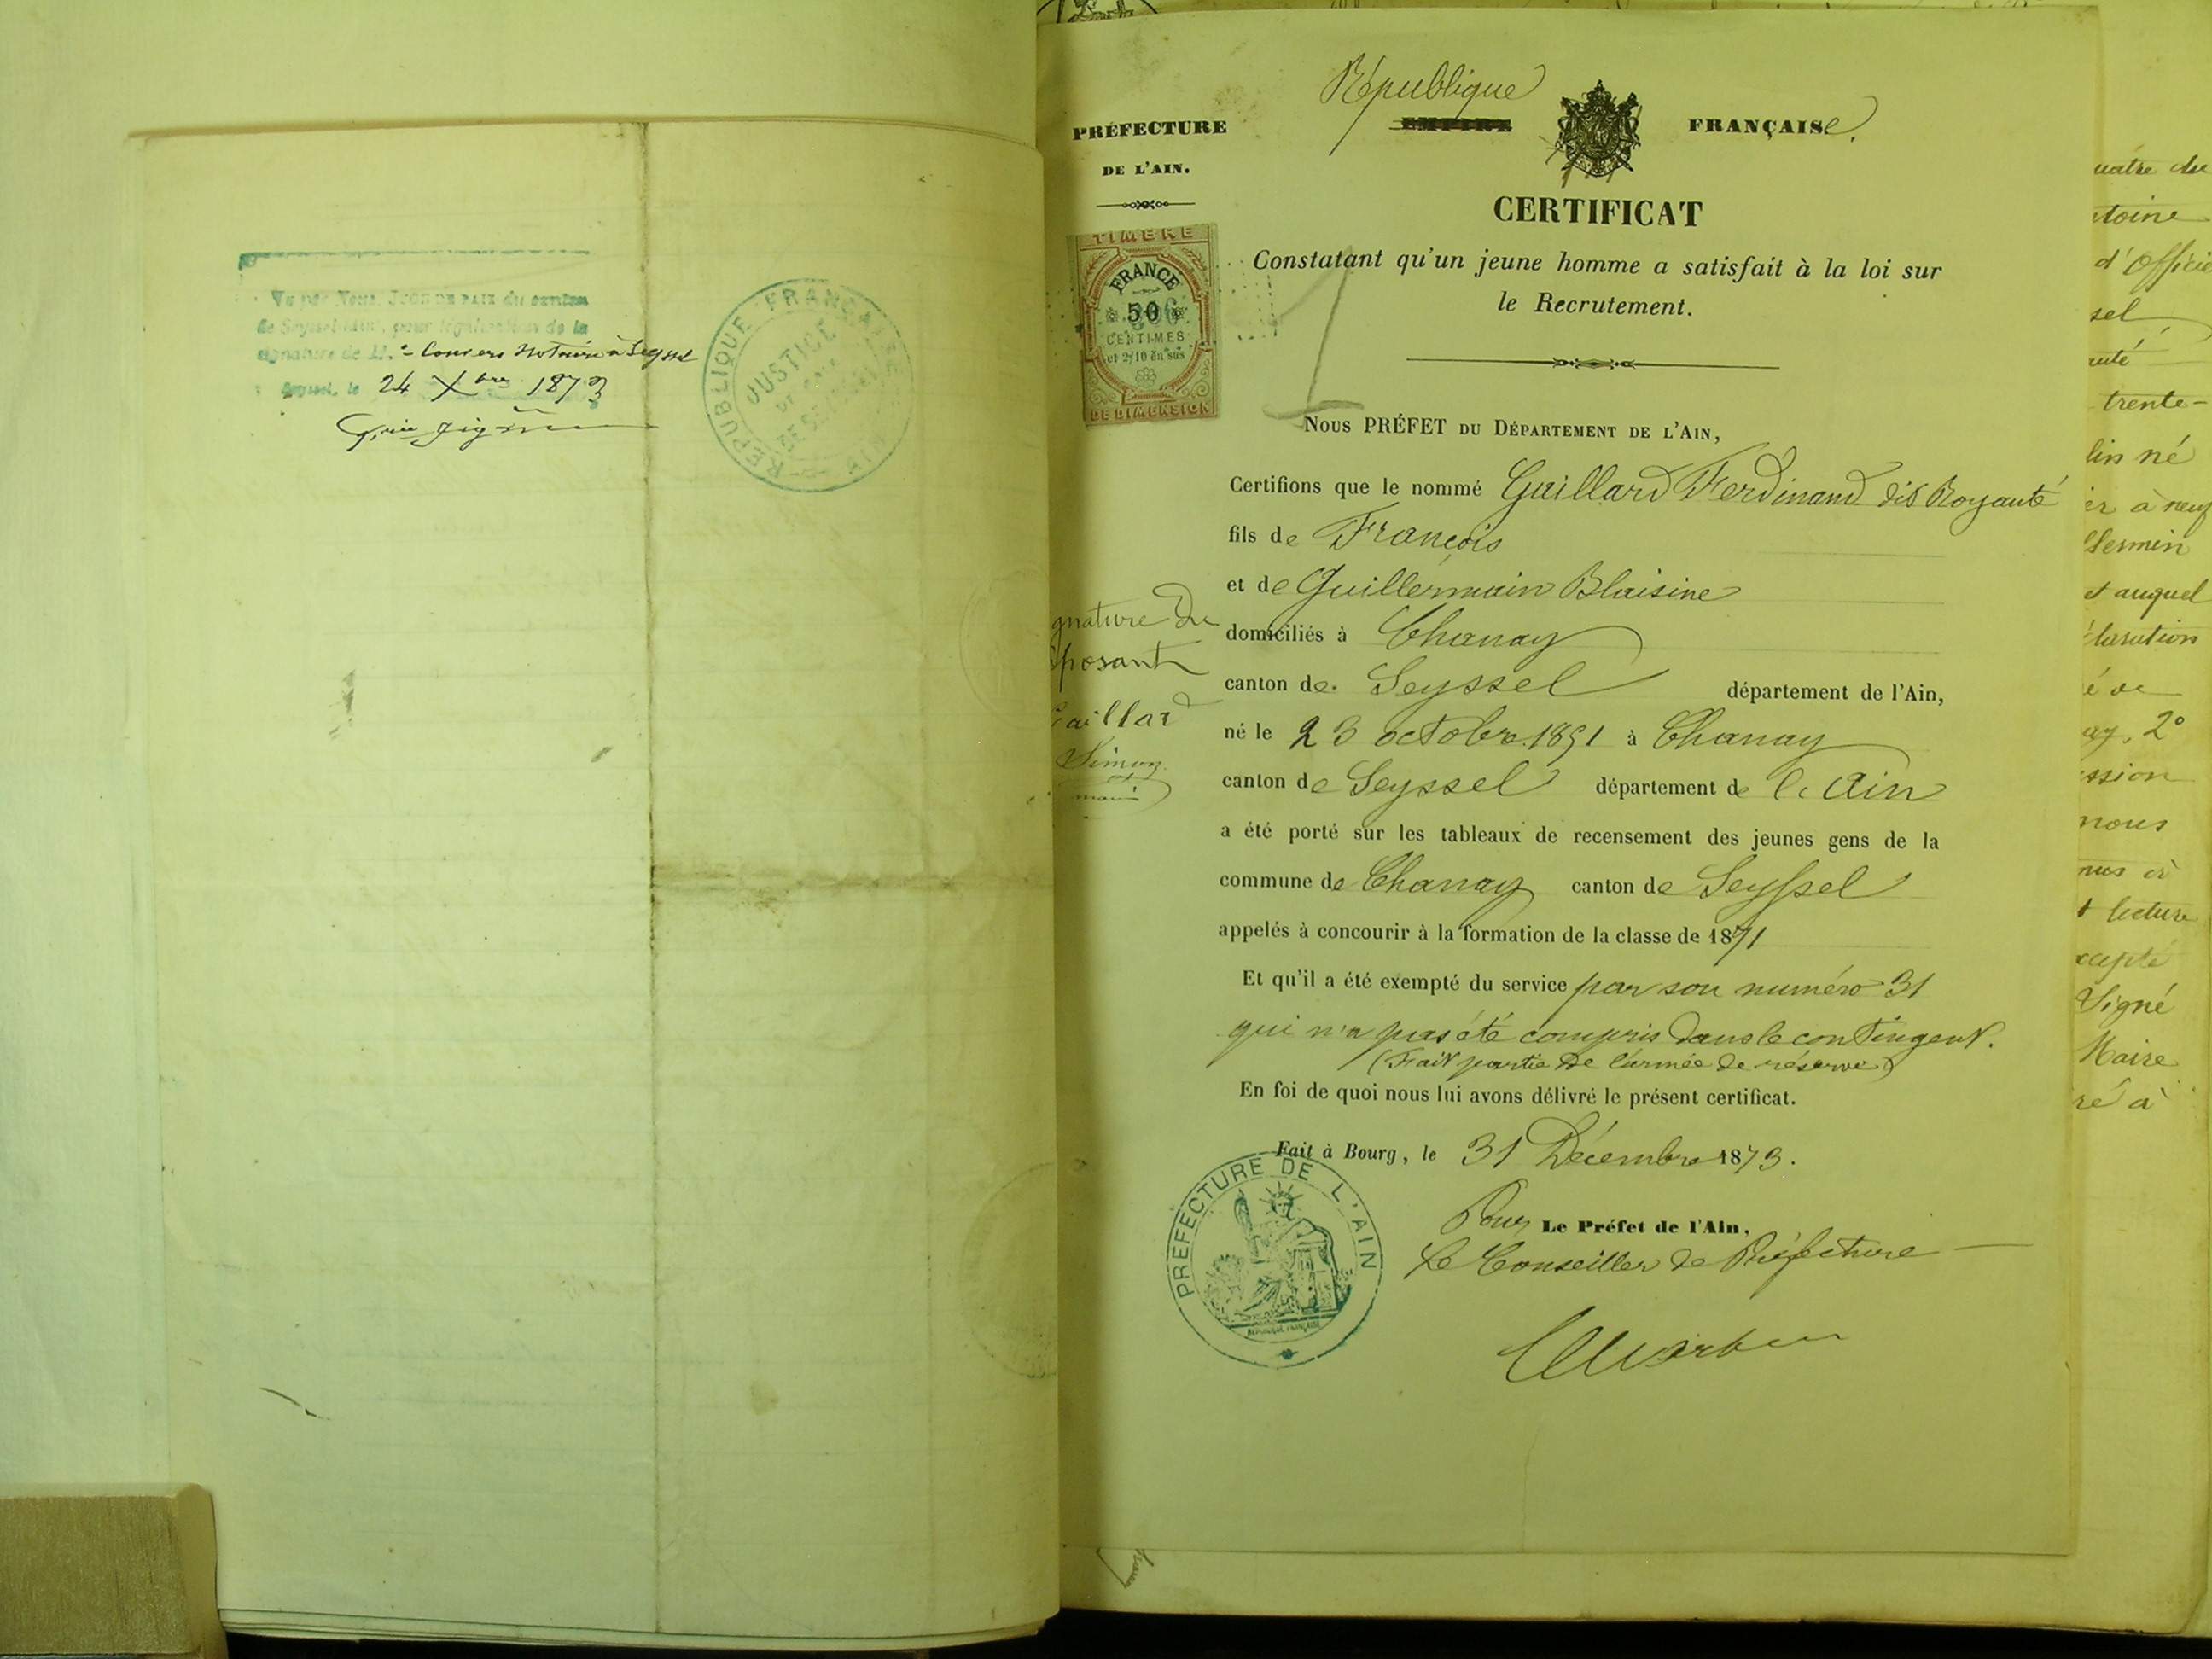 Vu par Nous, JUGE DE PAIX du canton
de Seyssel (Ain), pour légalisation de la
signature de M.e Convers Notaire à Seyssel
Seyssel, le 24 Xbre 1873
RÉPUBLIQUE FRANÇAISE
JUSTICE
DE PAIX
DE SEYSSEL
AIN
République
EMPIRE FRANÇAISe.
PRÉFECTURE
DE L'AIN.
TIMBRE
FRANCE
50
CENTIMES
et 2/10 en sus
DE DIMENSION
CERTIFICAT
Constatant qu'un jeune homme a satisfait à la loi sur
le Recrutement.
NOUS PRÉFET DU DÉPARTEMENT DE L'AIN,
Certifions que le nommé Guillard Ferdinand dit Royauté
fils de François
et de Guillermain Blaisine
domiciliés à Chanay
canton de Seyssel département de l'Ain,
né le 23 octobre 1851 à Chanay
canton de Seyssel département de l'Ain
a été porté sur les tableaux de recensement des jeunes gens de la
commune de Chanay canton de Seyssel
appelés à concourir à la formation de la classe de 1871
Et qu'il a été exempté du service par son numéro 31
qui n'a pas été compris dans le contingent.
(Fait partie de l'armée de réserve)
En foi de quoi nous lui avons délivré le présent certificat.
Fait à Bourg, le 31 Décembre 1873.
Pour Le Préfet de l'Ain,
Le Conseiller de Préfecture
PRÉFECTURE DE L'AIN
RÉPUBLIQUE FRANÇAISE
gnature du
posant
aillard
Simon
uatre du
toine
d'Officie
sel
auté
trente-
lin né
er à neuf
llermin
et auquel
laration
é de
ay, 2°
ssion
nous
nus à
t lecture
cepté
Signé
Maire
ré à